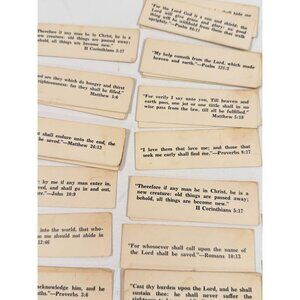 shall hide me
For the Lord God is a sun and shield: the
Lord will give grace and glory: no good
them that walk
uprightly."—Psalm 84:11
if any man be in Christ, he is a
new creature: old things are passed away;
behold, all things are become new."
II Corinthians 5:17
"My help cometh from the Lord, which made
heaven and earth."—Psalm 121:2
are they which do hunger and thirst
righteousness: for they shall be filled."
Matthew 5:6
"For verily I say unto you, Till heaven and
earth pass, one jot or one tittle shall in no
wise pass from the law, till all be fulfilled."
Matthew 5:18
shall endure unto the end, the
be saved."—Matthew 24:13
"I love them that love me; and those that
seek me early shall find me."—Proverbs 8:17
by me if any man enter in,
saved, and shall go in and out,
—John 10:9
"Therefore if any man be in Christ, he is a
new creature: old things are passed away;
behold, all things are become new."
II Corinthians 5:17
into the world, that who-
me should not abide in
12:46
"For whosoever shall call upon the name of
the Lord shall be saved."—Romans 10:13
acknowledge him, and he
paths."—Proverbs 3:6
"Cast thy burden upon the Lord, and he shall
sustain thee: he shall never suffer the